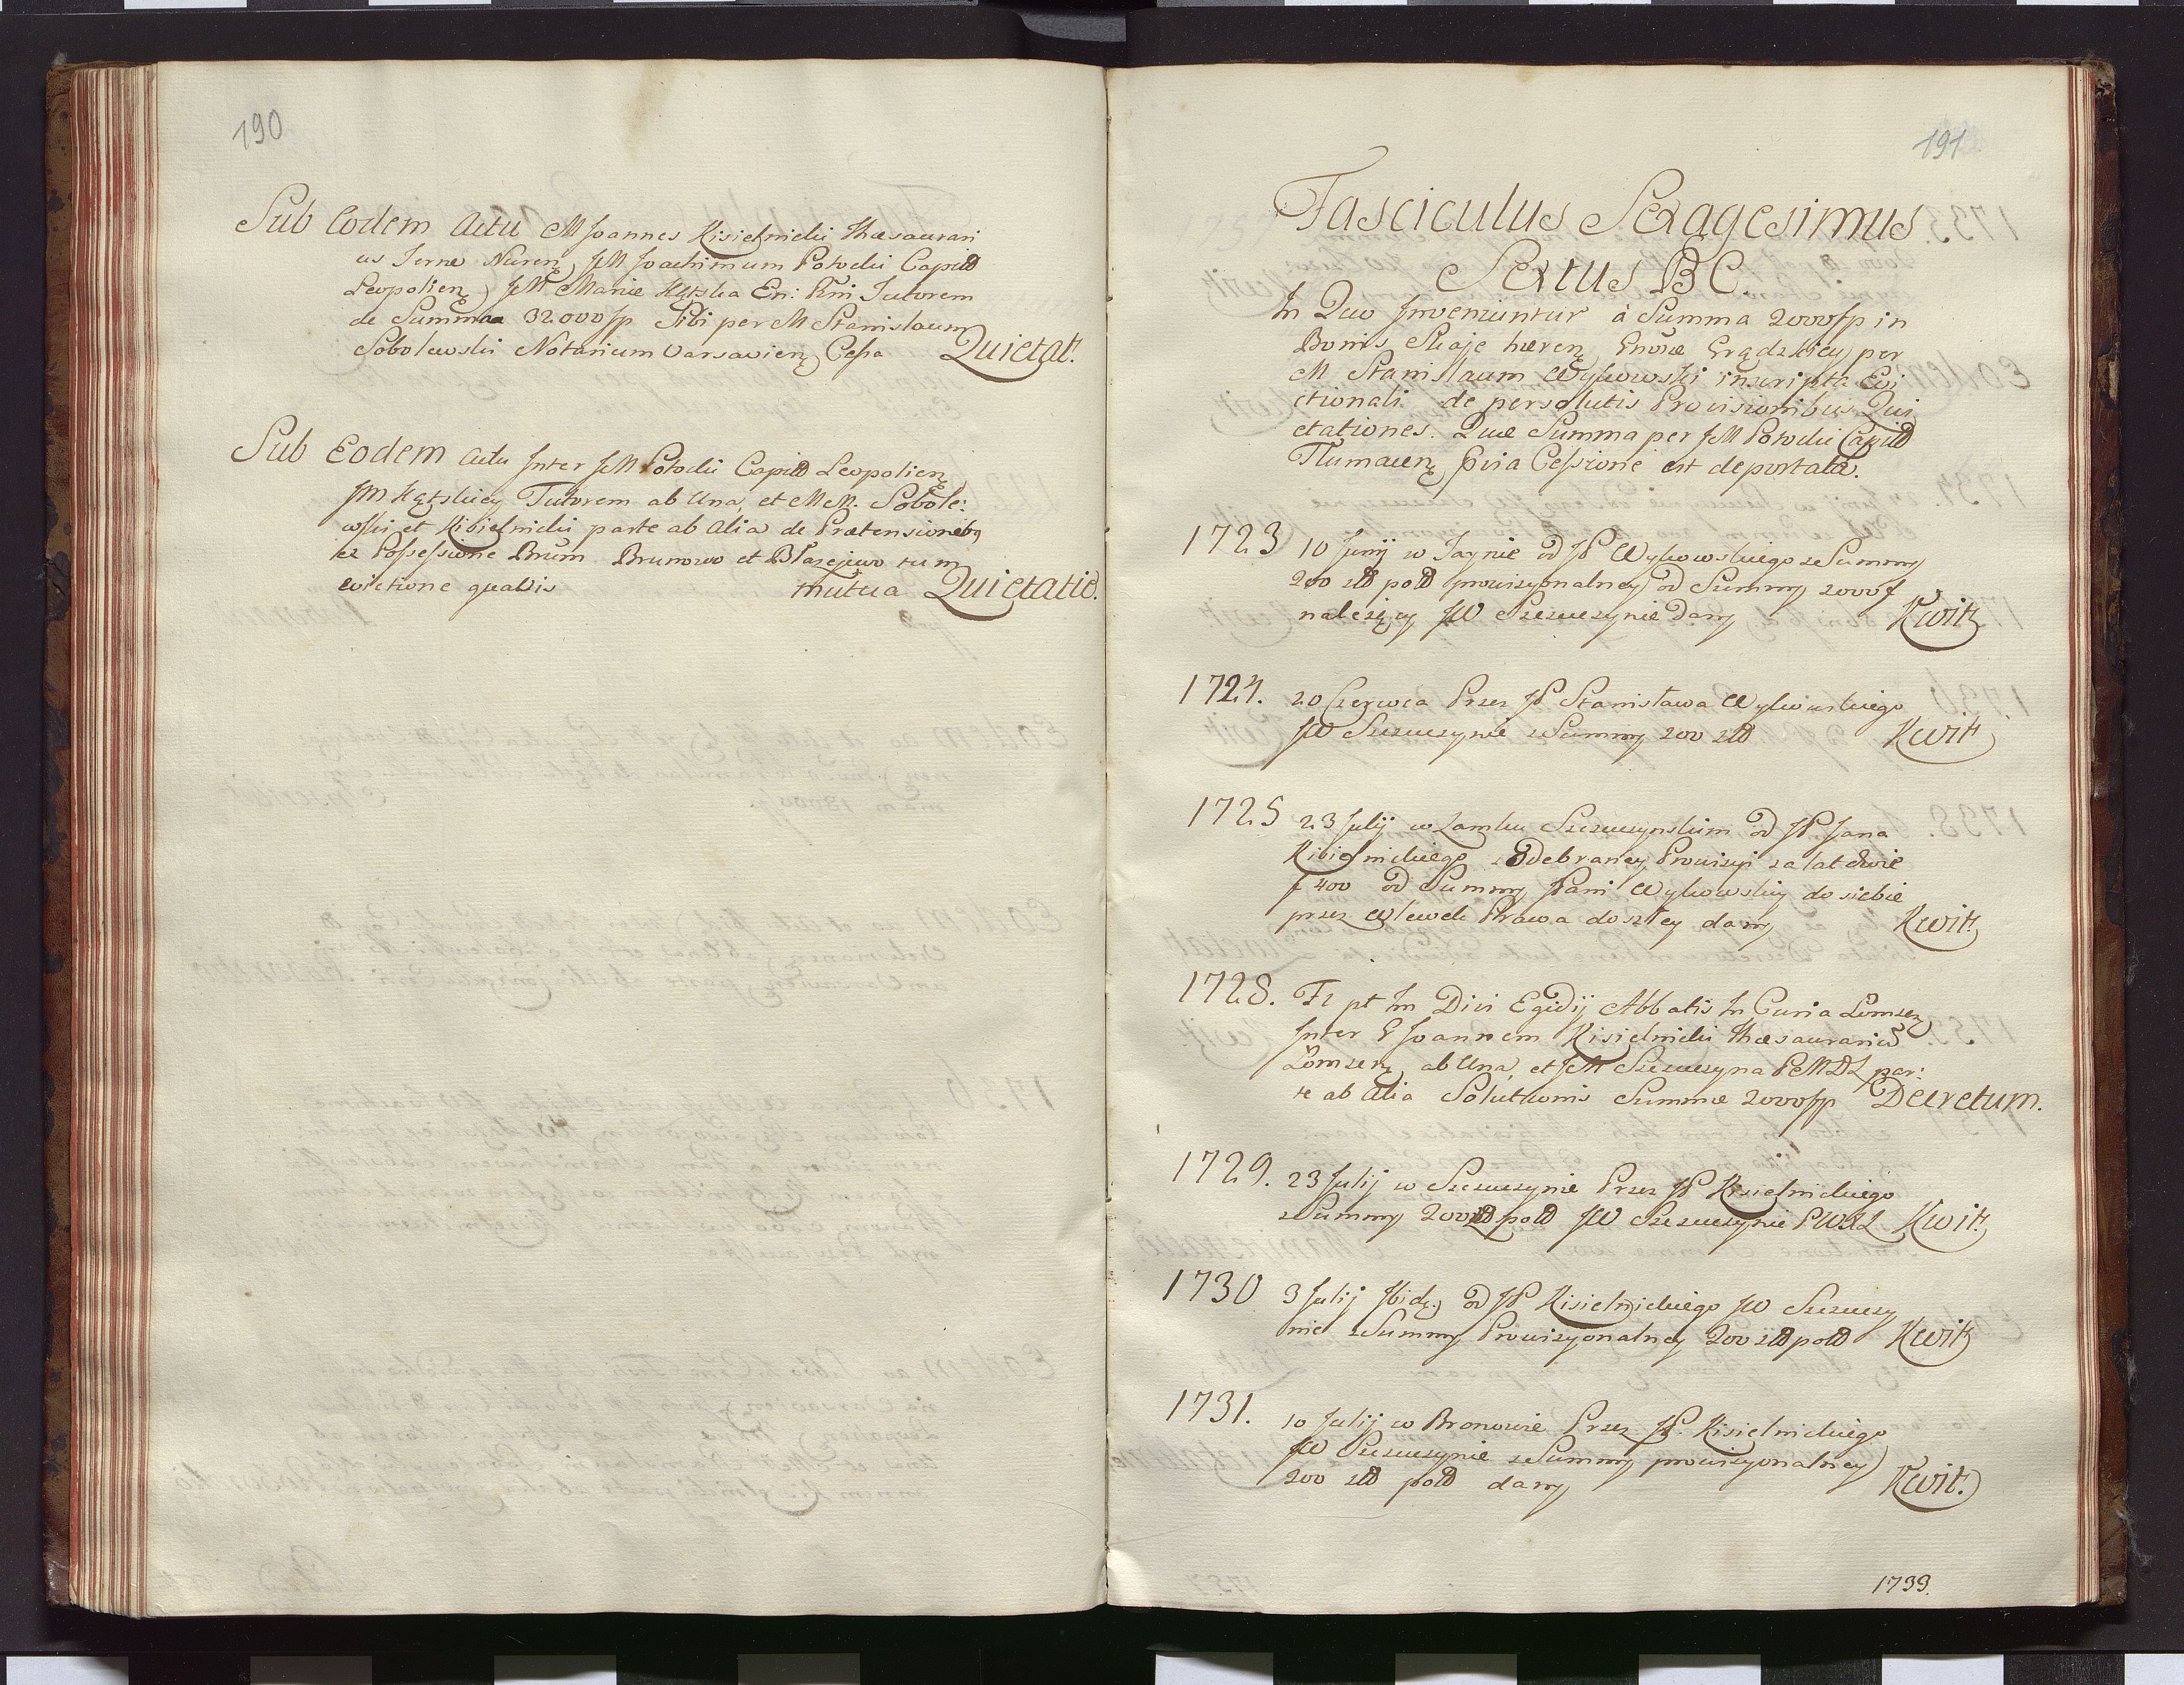 190
Sub Eodem Actu M Joannes Kisielnicki Thesaurari
us Terræ Nuren, JM Joachimum Potocki Capitł
Leopolien, JM Mariæ Kątska En: Rni Tutorem
de Summa 32000 fp Sibi per M Stanislaum
Sobolewski Notarium Varsavien, Cessa Quietat.
Sub Eodem Actu Inter JM Potocki Capitł Leopolien,
JM Kątskiey Tutorem ab Una, et MM. Sobole:
wski et Kisielnicki parte ab Alia de Prætensionibq
ex Possessione Bnum Brunowo et Błazejewo tum
evictione quavis mutua Quietatio.
191
Fasciculus Sexagesimus
Sextus B C.
In Quo Inveniuntur à Summa 2000 fp in
Bonis hæren, Grądzkiey per
M Stanislaum Wykowski inscripta Evi
ctionali de persolutis Provisionibus Qui
etationes. Quæ Summa per JM Potocki Capitł
Tlumacen, Cessione est deportata.
1723 10 Junij w Jaynie od JP Wykowskiego z Summy
200 złł polł prowizyonalney od Summy 2000 f
należącey JW Szczuczynie dany Kwit
1724. 20 Czerwca Przez JP Stanisława Wykowskiego
JW Szczuczynie z Summy 200 złł Kwit
1725 23 Julij w Zamku Szczuczynskim od JP. Jana
Kisielnickiego z Odebraney Prowizyi za lat dwie
f 400 od Summy Pani Wykowskiey do siebie
przez Wlewek Prawa doszłey dany Kwit.
1728. Fr pt Im Divi Egidij Abbatis In Curia Lomzen,
Inter G Joannem Kisielnicki Thesaurariū
Łomzen, ab Una, et JM Szczuczyna PMDL par:
te ab Alia Solutionis Summæ 2000 fp Decretum.
1729. 23 Julij w Szczuczynie Przez JP Kisielnickiego
z Summy 200 złł polł JW Szczuczynie PWXL Kwit.
1730 3 Julij Ibid, od JP Kisielnickiego JW Szczuczy
nie z Summy Prowizyonalney 200 złł polł Kwit
1731. 10 Julij w Bronowie Przez JP. Kisielnickiego
JW Szczuczynie z Summy prowizyonalney
200 złł polł dany Kwit.
1733.